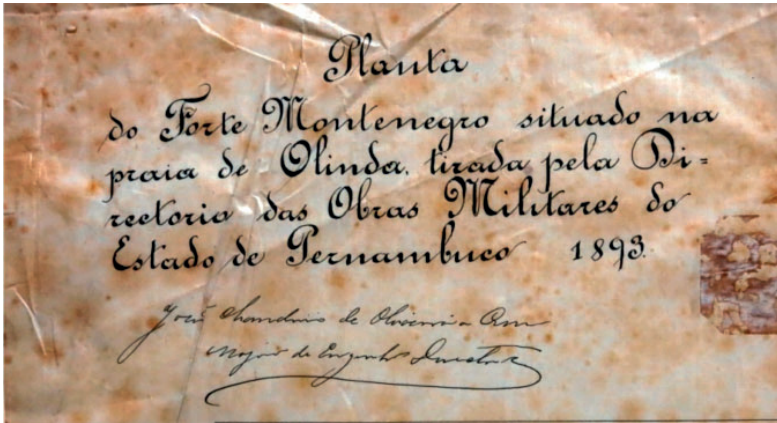 Planta
do Forte Montenegro situado na
praia de Olinda, tirada pela Di=
rectoria das Obras Militares do
Estado de Pernambuco 1893.
José de Oliveira
Major de Engenhos Director